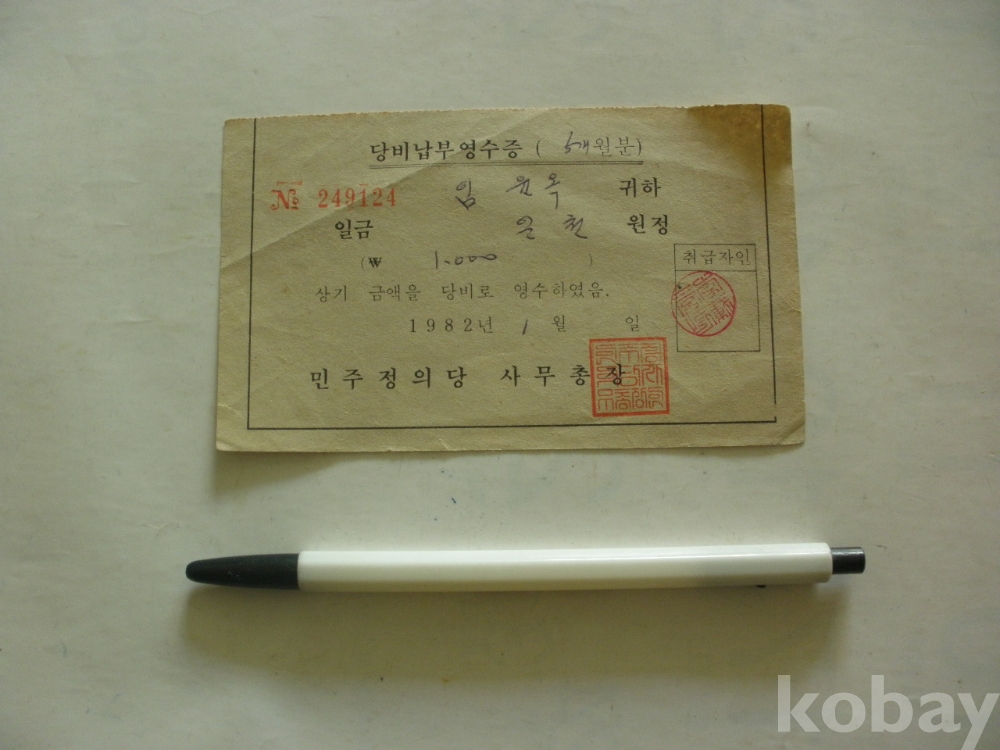 당비납부영수증 ( 5개월분)
№ 249124 임 윤옥 귀하
일금 일천 원정
(₩ 1.000 )
취급자인
상기 금액을 당비로 영수하였음.
1982년 1월 일
민주정의당 사무총장
kobay